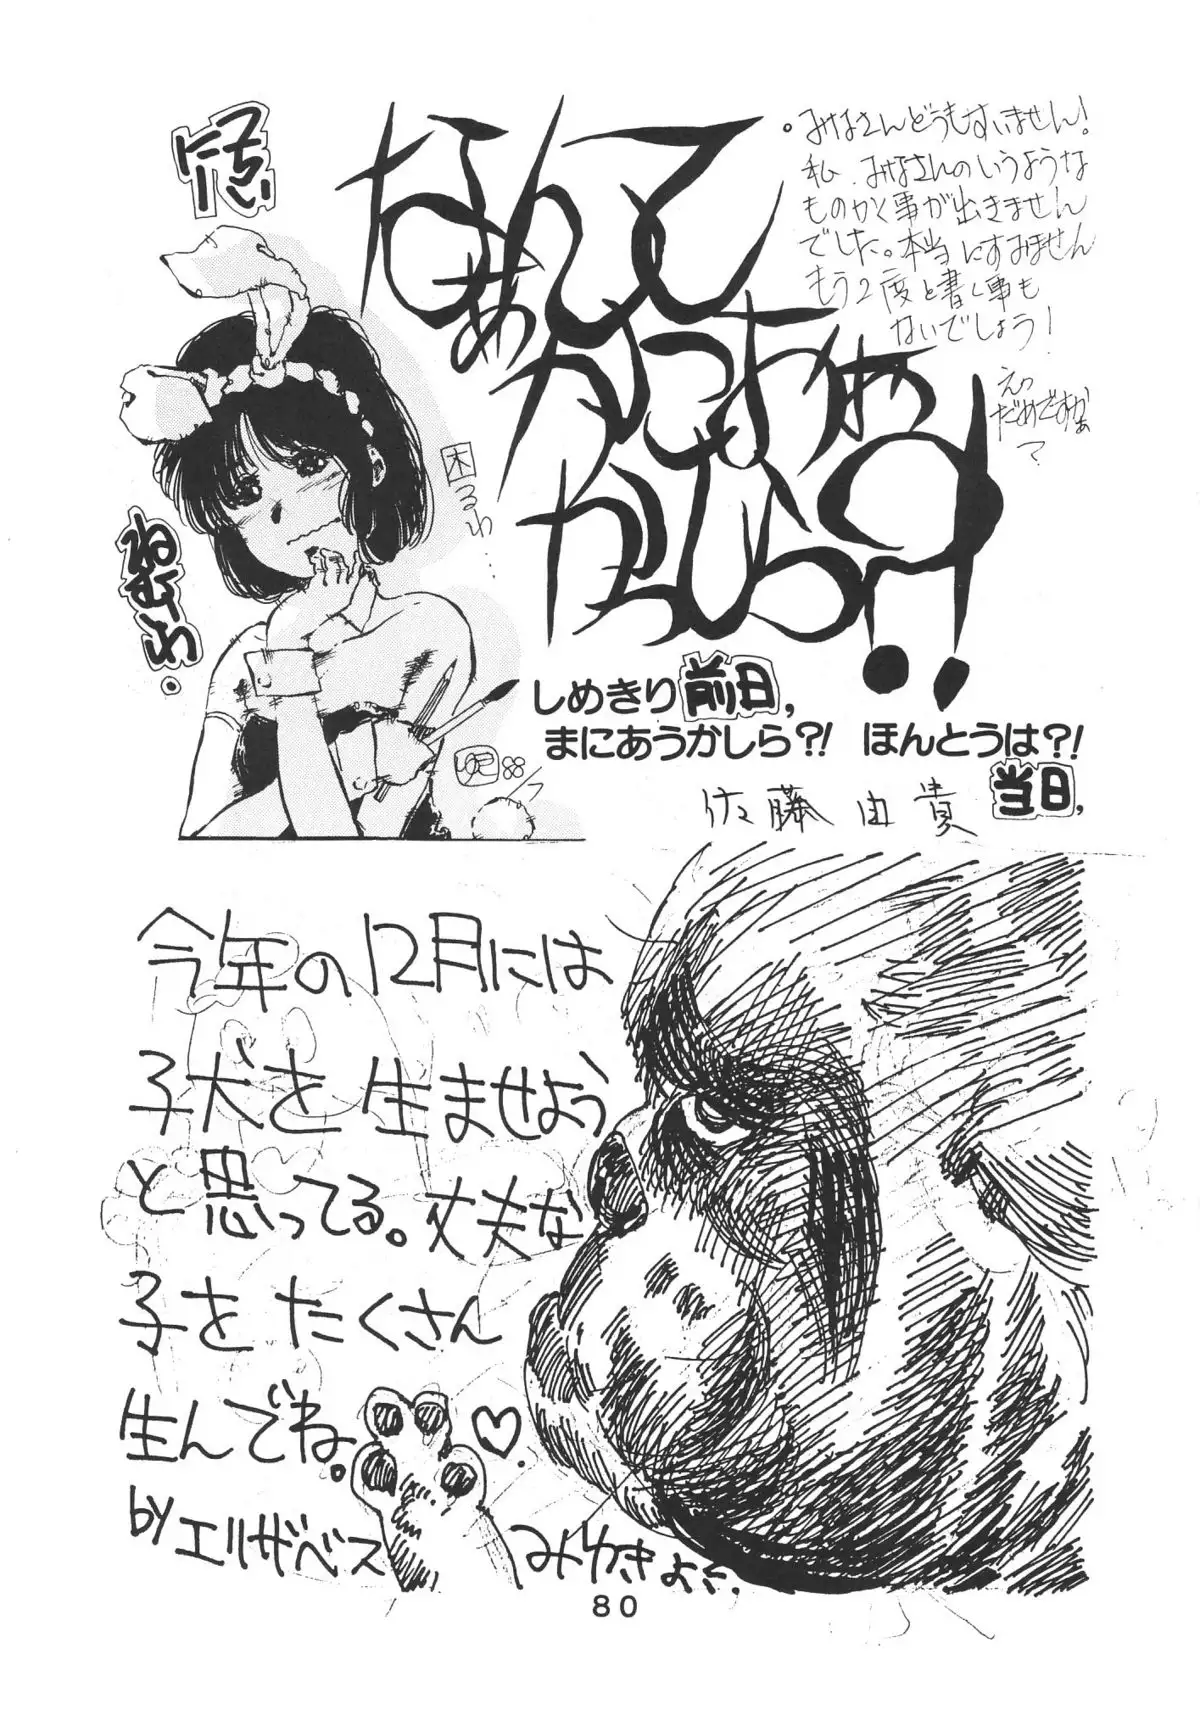 なぁんて
かっちゃ
みなさんどうもすいません!
私、みなさんのいうような
ものかく事が出きません
でした。本当にすみません
もう2度と書く事も
ないでしょう!
えっ
だめですかぁ
?
困るわ…
ねむいわ。
しめきり前日,
まにあうかしら?! ほんとうは?!
当日,
佐藤由貴
88
今年の12月には
子犬を生ませよう
と思ってる。丈夫な
子をたくさん
生んでね。♡.
byエルザベス みゆきより.
80